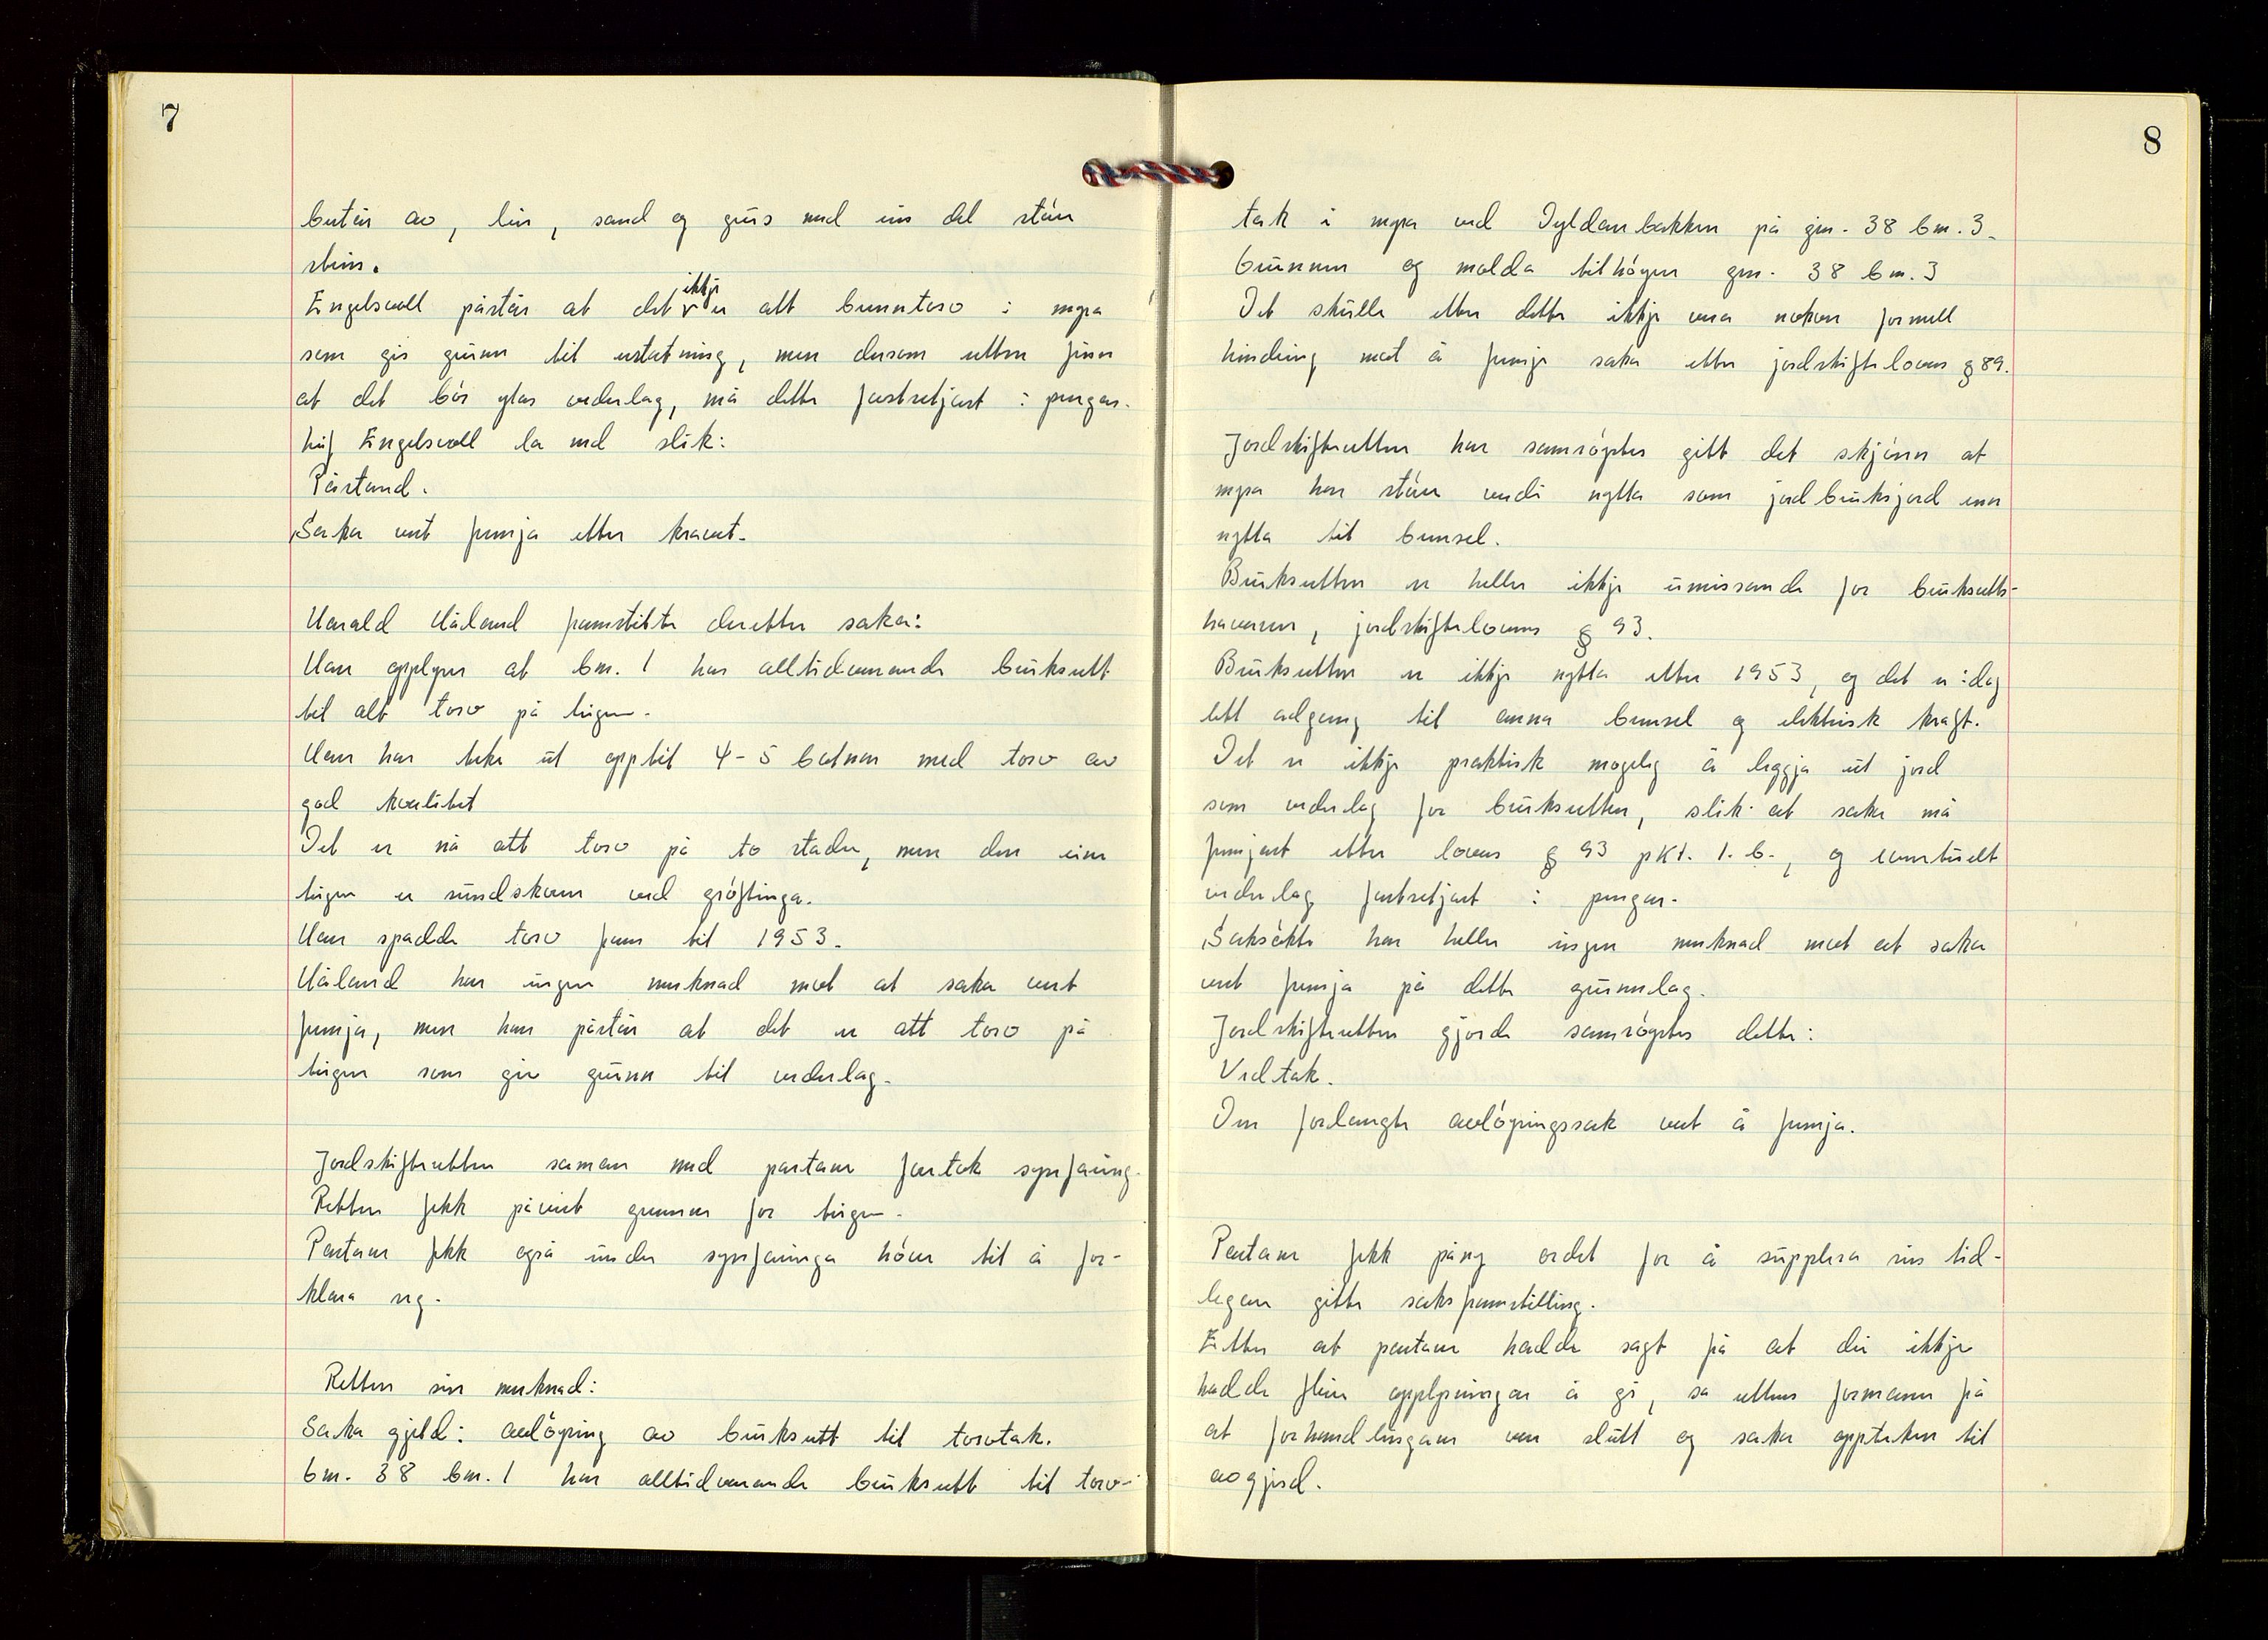 7
består av, leir, sand og grus med ein del større
stein.
Engelsvoll påstår at det ikkje er att brenntorv i myra
som gir grunn til erstatning, men dersom retten finn
at det bør ytes vederlag, må dette fastsetjast i pengar.
Leif Engelsvoll la ned slik:
Påstand.
Saka vert fremja etter kravet.
Harald Håland framstilte deretter saka:
Han opplyser at bnr. 1 har alltidvarande bruksrett
til alt torv på teigen.
Han har teke ut opptil 4-5 batnar med torv av
god kvalitet
Det er nå att torv på to stader, men den eine
teigen er rundskoren ved grøftinga.
Han spadde torv fram til 1953.
Håland har ingen merknad mot at saka vert
fremja, men han påstår at det er att torv på
teigen som gir grunn til vederlag.
Jordskifteretten saman med partane foretok synfaring.
Retten fekk påvist grensene for teigen.
Partane fekk også under synfaringa høve til å for-
klara seg.
Retten sin merknad:
Saka gjeld: avløysing av bruksrett til torvtak.
bnr. 38 bnr. 1 har alltidvarande bruksrett til torv-
8
tak i myra ved Dyldarbakken på gnr. 38 bnr. 3.
Grunnen og molda tilhøyrer gnr. 38 bnr. 3
Det skulle etter dette ikkje vera nokon formell
hindring mot å fremje saka etter jordskiftelovens § 89.
Jordskifteretten har samrøystes gitt det skjønn at
myra har større verdi nytta som jordbruksjord enn
nytta til brensel.
Bruksretten er heller ikkje umissande for bruksretts-
havaren, jordskiftelovens § 93.
Bruksretten er ikkje nytta etter 1953, og det er idag
lett adgang til anna brensel og elektrisk kraft.
Det er ikkje praktisk mogeleg å leggja ut jord
som vederlag for bruksretten, slik at saka må
fremjast etter lovens § 93 pkt. 1. b., og eventuelt
vederlag fastsetjast i pengar.
Saksøkte har heller ingen merknad mot at saka
vert fremja på dette grunnlag.
Jordskifteretten gjorde samrøystes dette:
Vedtak.
Den forlangte avløysingssak vert å fremja.
Partane fekk på ny ordet for å supplera sin tid-
legare gitte saksframstilling.
Etter at partane hadde sagt frå at dei ikkje
hadde fleire opplysningar å gi, sa rettens formann frå
at forhandlingane var slutt og saka oppteken til
avgjerd.